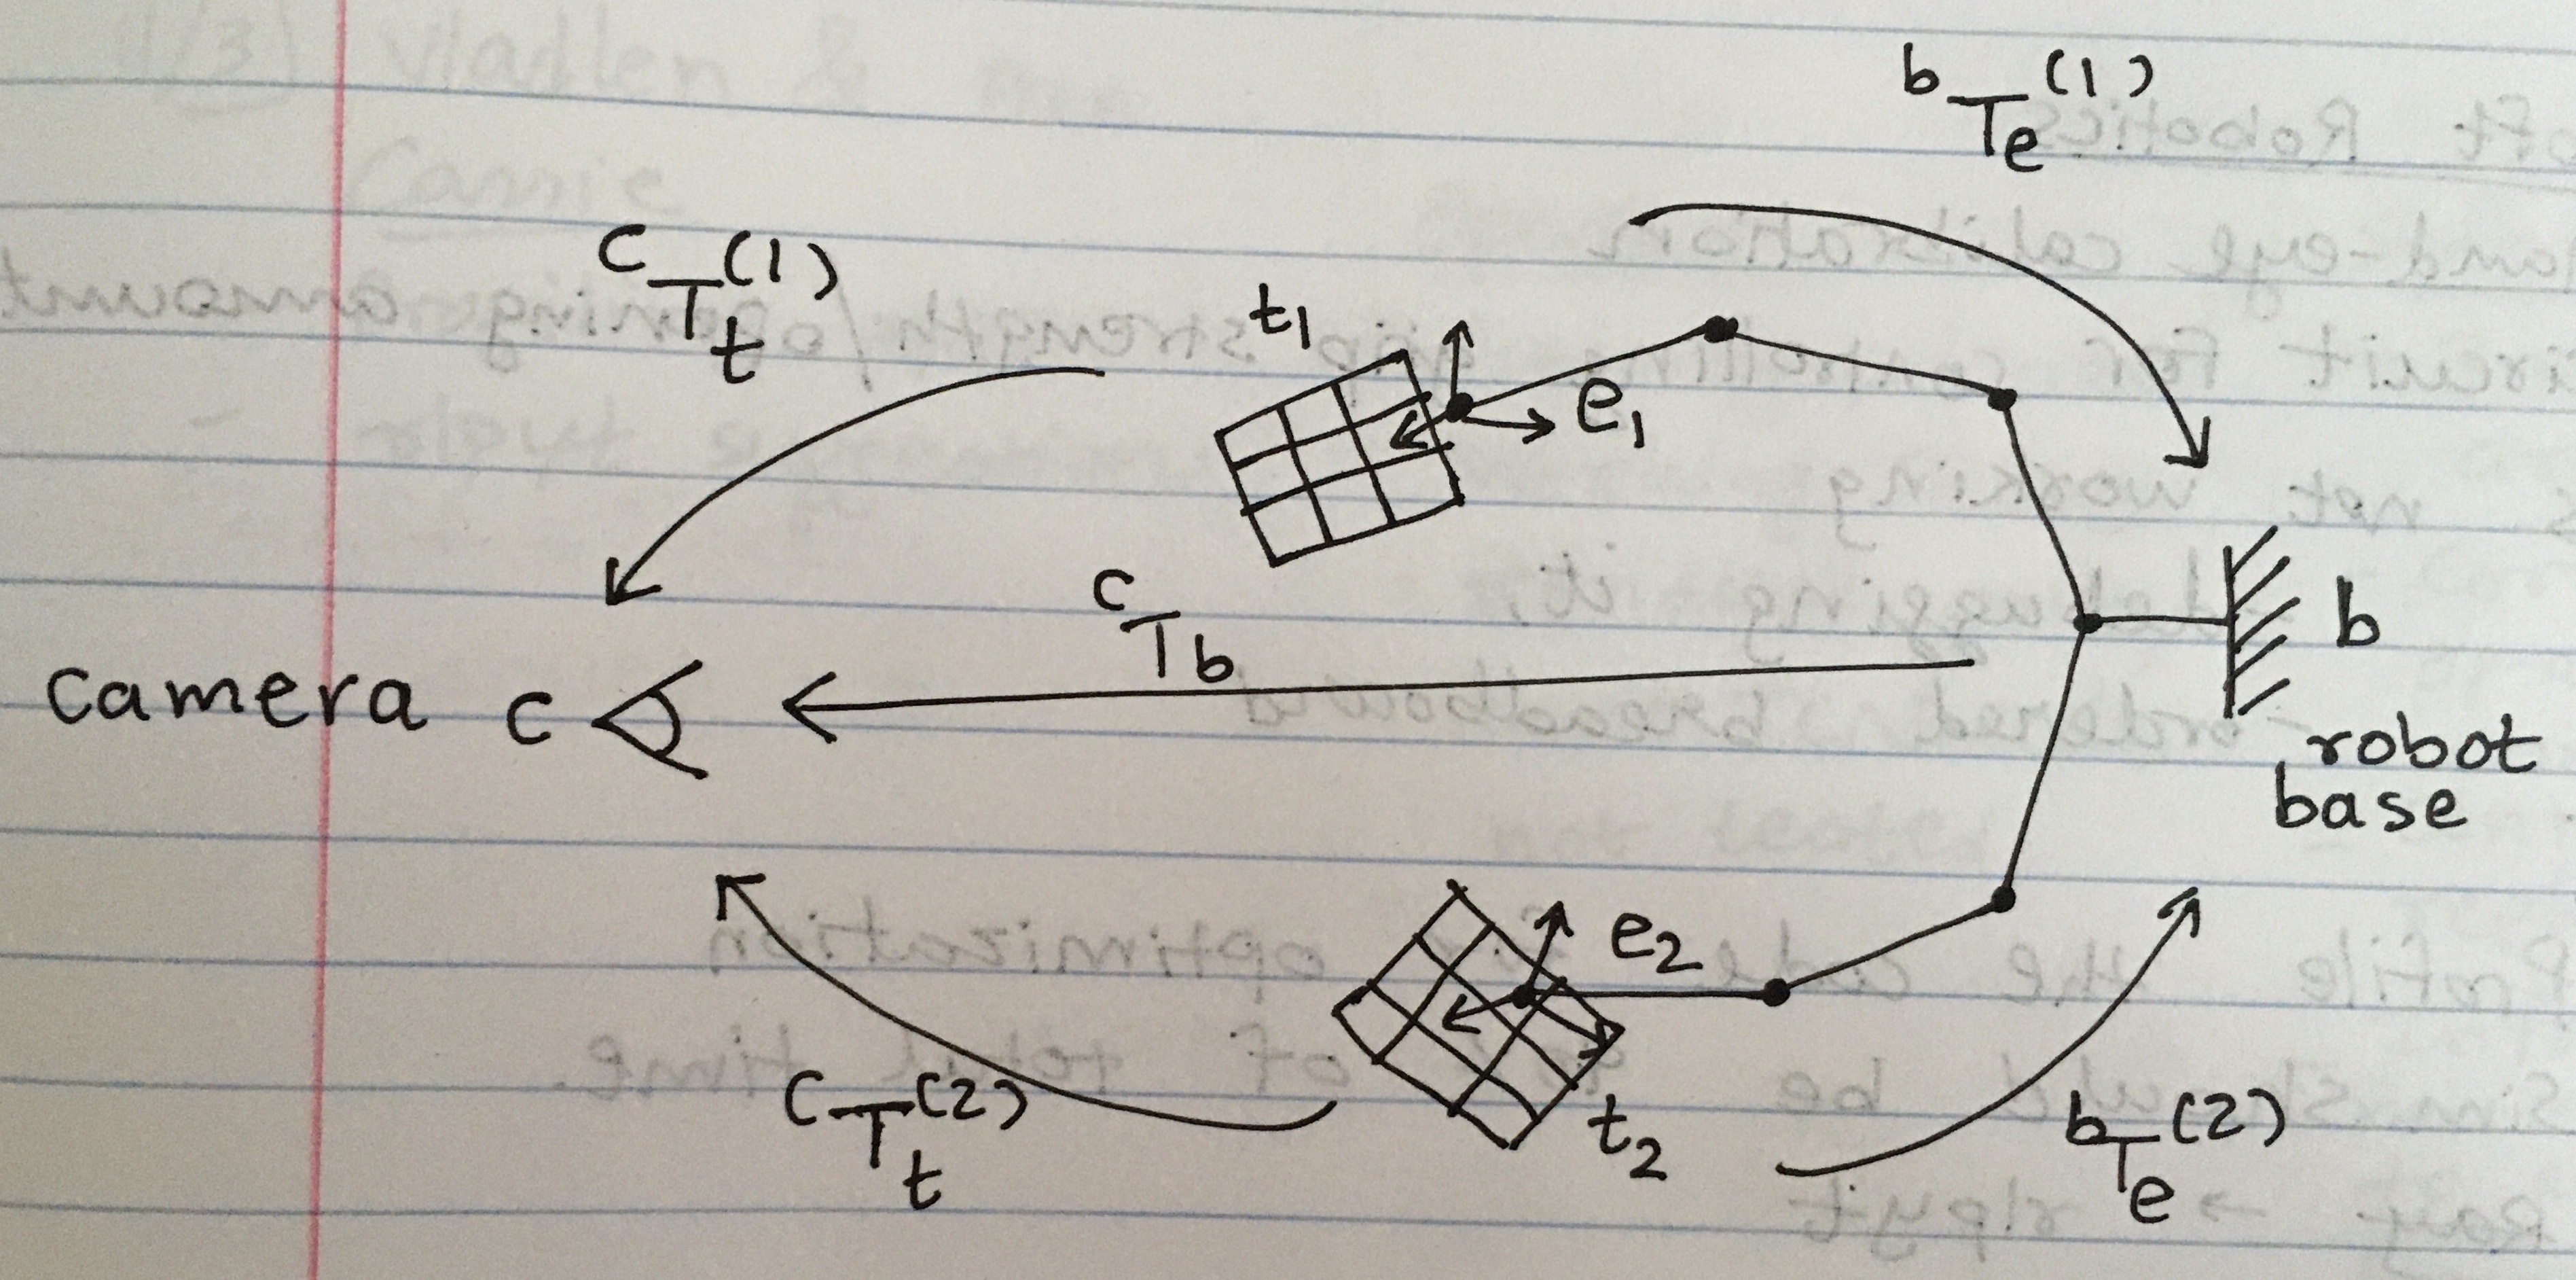 b T e (1)
c T t (1)
t1
e1
c T b
b
camera c
robot
base
e2
c T t (2)
t2
b T e (2)